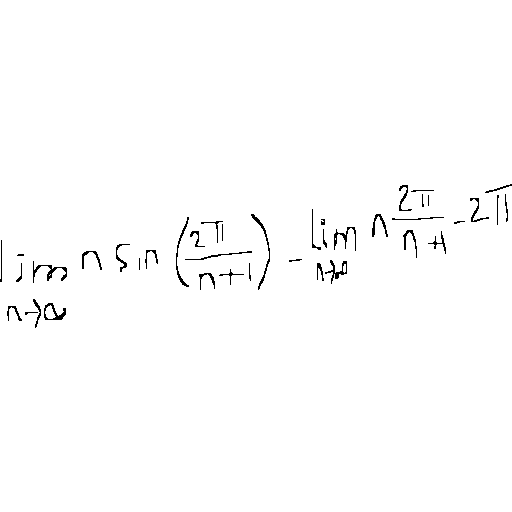 \lim_{n \to \infty} n \sin \left( \frac{2\pi}{n+1} \right) - \lim_{n \to \infty} n \frac{2\pi}{n+1} - 2\pi